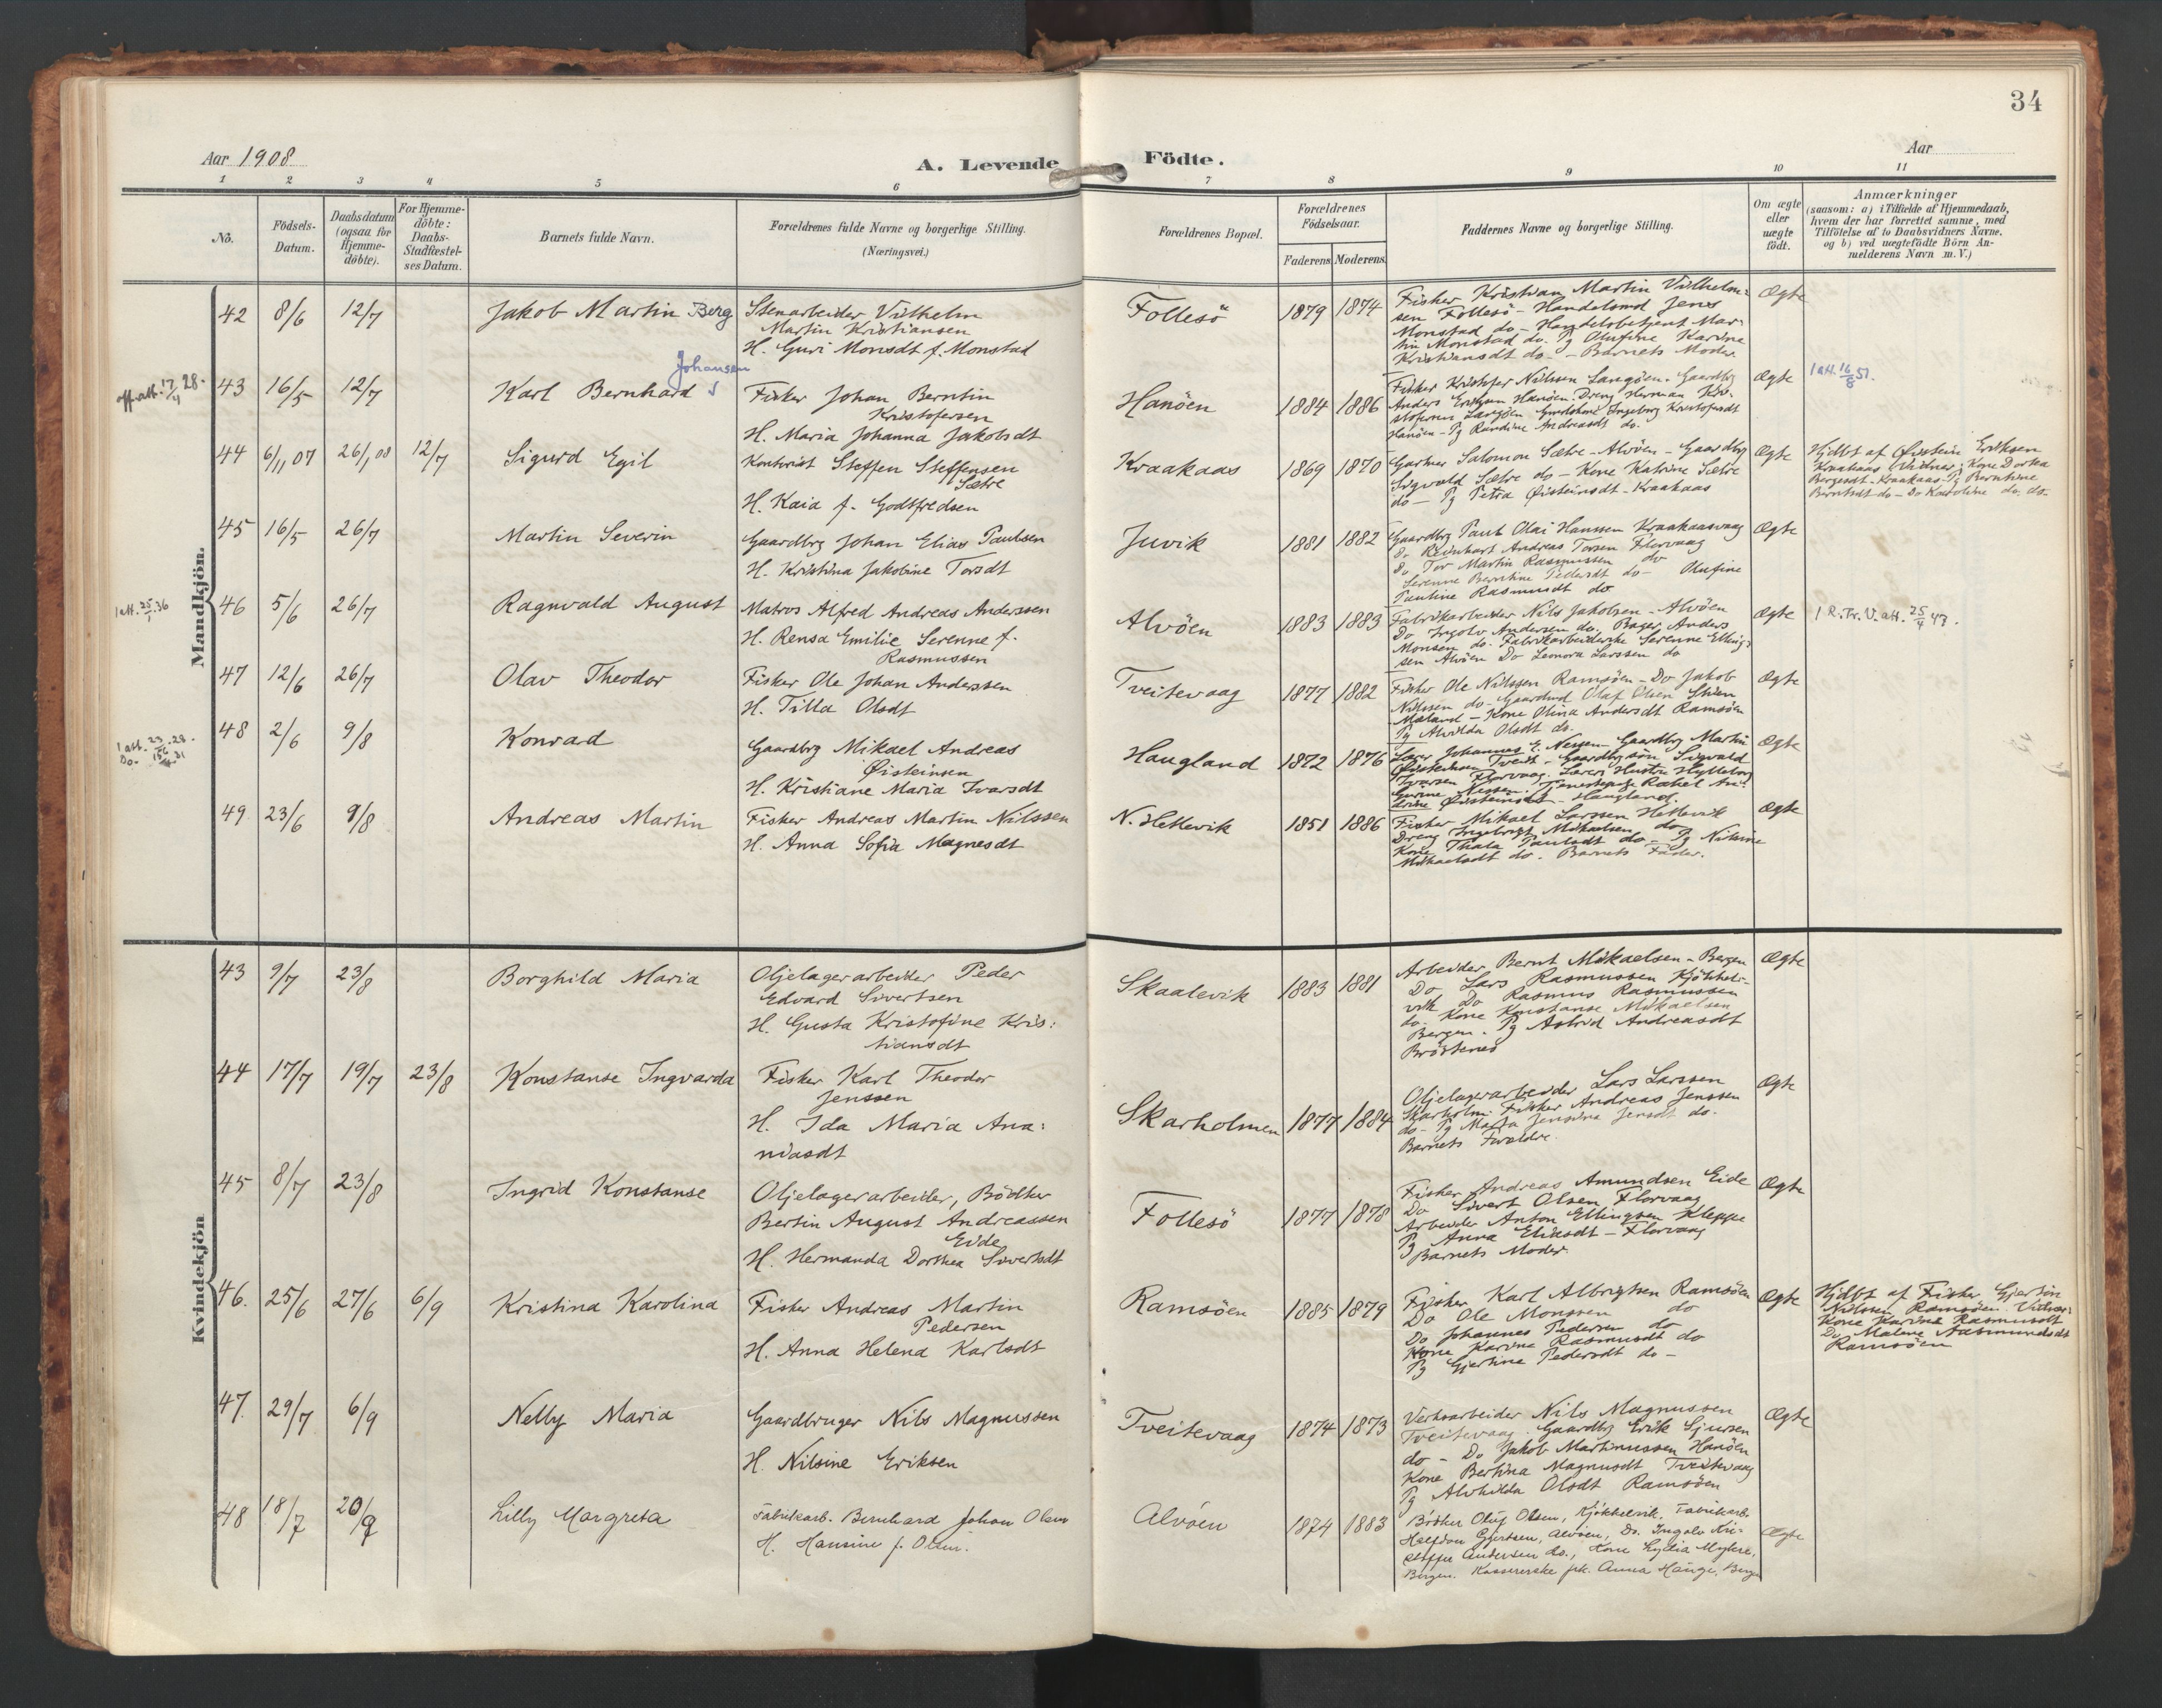 34
Aar 1908
A. Levende Födte.
Aar
1 2 3 4 5 6 7 8 9 10 11
No.
Födsels-
Datum.
Daabsdatum
(ogsaa for
Hjemme-
döbte).
For Hjemme-
döbte:
Daabs-
Stadfæstel-
ses Datum.
Barnets fulde Navn.
Forældrenes fulde Navne og borgerlige Stilling.
(Næringsvei.)
Forældrenes Bopæl.
Forældrenes
Födselsaar.
Faderens. Moderens.
Faddernes Navne og borgerlige Stilling.
Om ægte
eller
uægte
födt.
Anmærkninger
(saasom: a) i Tilfælde af Hjemmedaab,
hvem der har forrettet samme, med
Tilföielse af to Daabsvidners Navne.
og b) ved uægtefödte Börn An-
melderens Navn m. V.)
Mandkjön.
42 8/6 12/7 Jakob Martin Berg
Stenarbeider Vilhelm
Martin Kristiansen
H. Guri Monsdt f. Monstad
Follesö 1879 1874
Fisker Kristian Martin Vilhelm-
sen Follesö - Handelsmd Jens
Monstad do - Handelsbetjent Mar-
tin Monstad do. Pg Olufine Karine
Kristiansdt do - Barnets Moder
Ægte
off. att. 17/4 28.
43 16/5 12/7 Karl Bernhard Johansen
Fisker Johan Berntin
Kristofersen
H. Maria Johanna Jakobsdt
Hanöen 1884 1886
Fisker Kristofer Nilssen Langöen. Gaardbrg
Anders Eriksen Hanöen. Dreng Herman Kri-
stofersen Langöen Ingeborg Kristofersdt
Hanöen - Pg Randine Andreasdt do.
Ægte
1 att. 16/8 51.
44 6/11 07 26/1 08 12/7 Sigurd Egil
Kontorist Steffen Steffensen
Sætre
H. Kaia f. Godtfredsen
Kraakaas 1869 1870
Gartner Salomon Sætre - Alvöen - Gaardbrg
Sigvald Sætre do - Kone Katrine Sætre
do - Pg Petra Øisteinsdt - Kraakaas
Ægte
Hjdbt af Øistein Eriksen
Kraakaas Vidner: Kone Dortea
Bergesdt - Kraakaas - Pg Berntine
Berntsdt do - Do Karoline do. do.
45 16/5 26/7 Martin Severin
Gaardbrg Johan Elias Paulsen
H. Kristina Jakobine Torsdt
Juvik 1881 1882
Gaardbrg Paul Olai Hanssen Kraakaasvaag
Do Reinhart Andreas Torsen Florvaag
Do Tor Martin Rasmussen do
Serenne Berntine Pedersdt do - Olufine
Pauline Rasmusdt do
Ægte
1 att. 25/1 36
46 5/6 26/7 Ragnvald August
Matros Alfred Andreas Anderssen
H. Rensa Emilie Serenne f.
Rasmussen
Alvöen 1883 1883
Fabrikarbeider Nils Jakobsen - Alvöen
Do Ingolv Andersen do. Bager Anders
Monsen do. Fabrikarbeiderske Serenne Elling-
sen Alvöen Do Leonora Larssen do
Ægte
1 R. Tr. V. att. 25/4 43.
47 12/6 26/7 Olav Theodor
Fisker Ole Johan Anderssen
H. Tilla Olsdt
Tveitevaag 1877 1882
Fisker Ole Nilssen Ramsöen - Do Jakob
Nilssen do - Gaardmd Olaf Olsen Skien
Mæland - Kone Olina Andersdt Ramsöen
Pg Alvilda Olsdt do.
Ægte
1 att. 23/6 28.
Do. 15/4 31
48 2/6 9/8 Konrad
Gaardbrg Mikael Andreas
Øisteinsen
H. Kristiane Maria Ivarsdt
Haugland 1872 1876
Lærer Johannes E. Nessen - Gaardbrg Martin
Øisteinsen Tveit - Gaardbrgsön Sigvald
Ivarsen Florvaag. Lærers Hustru Hylleborg
Gurine Nessen. Tjenestepige Rakel An-
drine Øisteinsdt - Haugland.
Ægte
49 23/6 9/8 Andreas Martin
Fisker Andreas Martin Nilssen
H. Anna Sofia Magnesdt
N. Hellevik 1851 1886
Fisker Mikael Larssen Hellevik
Dreng Ingebrigt Mikaelsen do
Kone Thala Paulsdt do - Pg Nilsine
Mikaelsdt do - Barnets Fader.
Ægte
Kvindekjön
43 9/7 23/8 Borghild Maria
Oljelagerarbeider Peder
Edvard Sivertsen
H. Gusta Kristofine Kris:
tiansdt
Skaalevik 1883 1881
Arbeider Bernt Mikaelsen - Bergen
Do Lars Rasmussen Kjökkel-
vik Do Rasmus Rasmussen
do. Kone Konstanse Mikaelsen
Bergen. Pg Astrid Andreasdt
Bröstenes
Ægte
44 17/7 19/7 23/8 Konstanse Ingvarda
Fisker Karl Theodor
Jenssen
H. Ida Maria Ana:
niasdt
Skarholmen 1877 1884
Oljelagerarbeider Lars Larssen
Skarholm. Fisker Andreas Jenssen
do - Pg Marta Jensine Jensdt do.
Barnets Forældre.
Ægte
45 8/7 23/8 Ingrid Konstanse
Oljelagerarbeider, Bödker
Bertin August Andreassen
Eide
H. Hermanda Dorthea Sivertsdt
Follesö 1877 1878
Fisker Andreas Amundsen Eide
Do Sivert Olsen Florvaag
Arbeider Anton Ellingsen Kleppe
Pg Anna Eliasdt - Florvaag
Barnets Moder.
Ægte
46. 25/6 27/6 6/9 Kristina Karolina
Fisker Andreas Martin
Pedersen
H. Anna Helena Karlsdt
Ramsöen 1885 1879
Fisker Karl Albrigtsen Ramsöen
Do Ole Monssen do
Do Johannes Pedersen do
Kone Karine Rasmusdt do
Pg Gjertine Pedersdt do -
Ægte
Hjdbt af Fisker Gjertin
Nilssen Ramsöen. Vidner:
Kone Karine Rasmusdt
Do Malene Aasmundsdt
Ramsöen
47. 29/7 6/9 Nelly Maria
Gaardbruger Nils Magnussen
H. Nilsine Eriksen
Tveitevaag 1874 1873
Verksarbeider Nils Magnussen
Tveitevaag. Gaardbrg Erik Sjursen
do - Do Jakob Martinussen Hanöen
Kone Bertina Magnusdt Tveitevaag
Pg Alvhilda Olsdt Ramsöen
Ægte
48 18/7 20/9 Lilly Margreta
Fabrikarb. Bernhard Johan Olsen
H. Hansine f. Olsen.
Alvöen 1874 1883
Bödker Oluf Olsen, Kjökkelvik, Fabrikarb.
Halfdan Gjertsen, Alvöen, Do. Ingolv Kri-
stoffer Andersen do., Kone Lydia Myhre,
Bergen. Kassererske frk. Anna Hauge, Bergen
Ægte